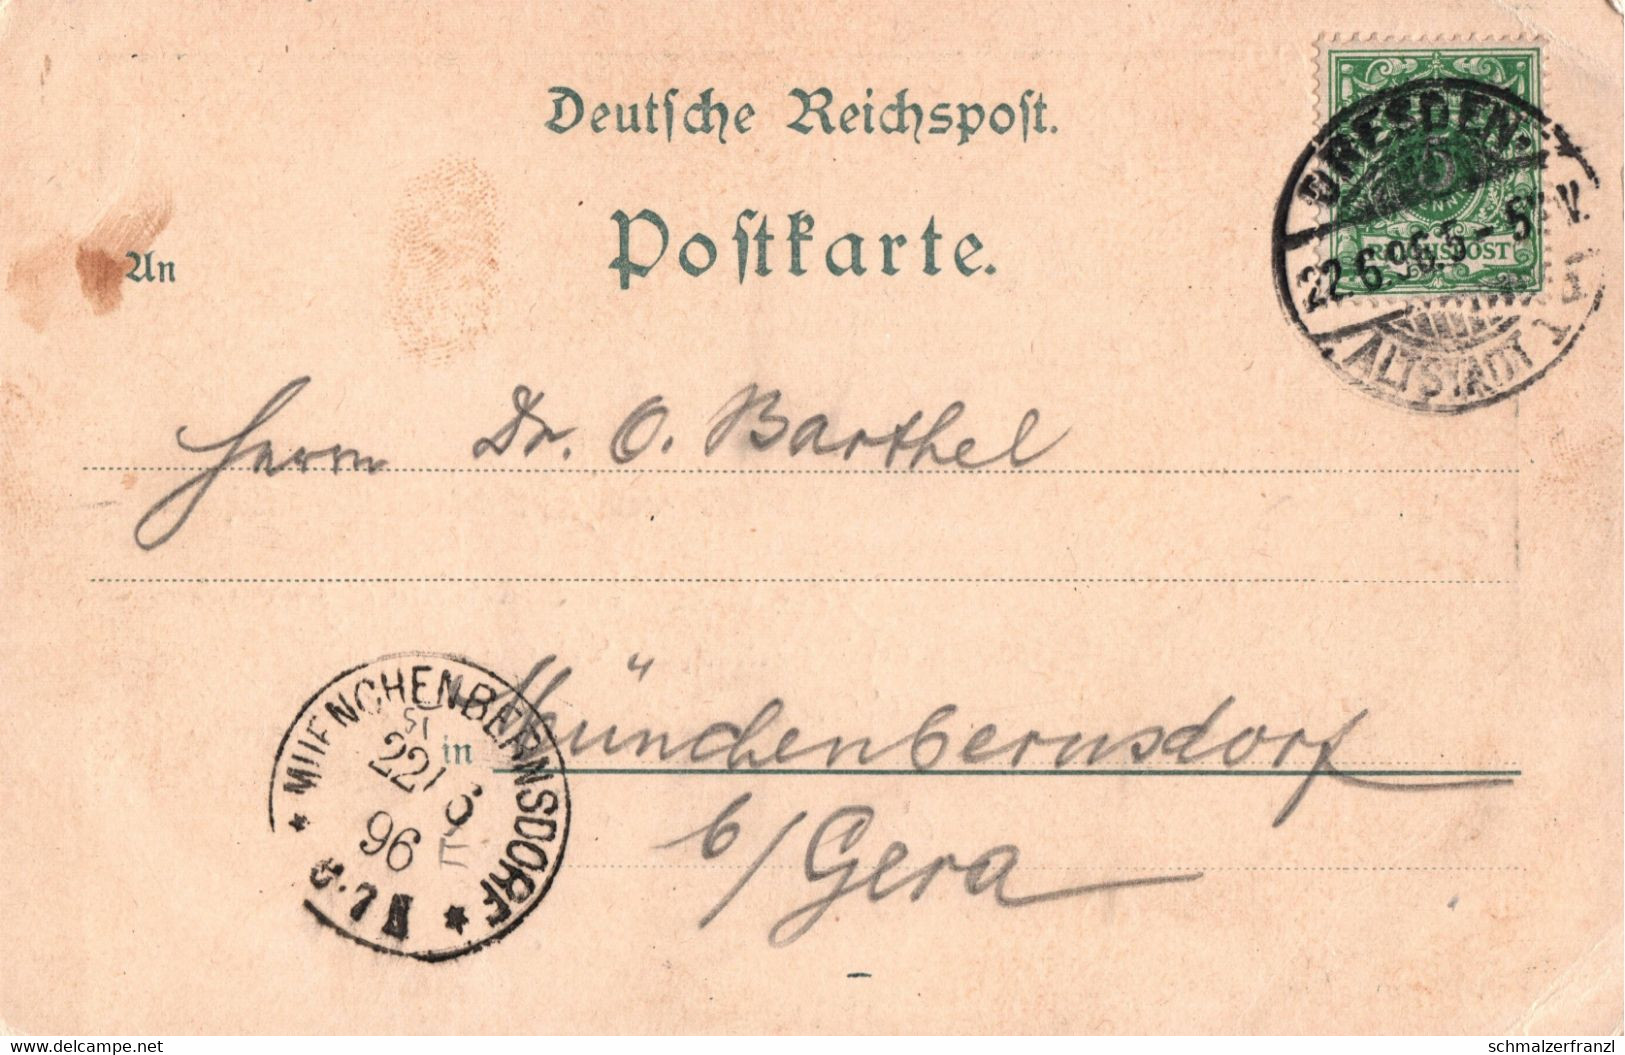 Deutsche Reichspost.
Postkarte.
An
5
REICHSPOST
DRESDEN.
22.6.96.5-5
ALTSTADT 1
Herrn Dr. O. Barthel
in Münchenbernsdorf
b/Gera
MUENCHENBERNSDORF
22 6
96
6-7 N
www.delcampe.net
schmalzerfranzl